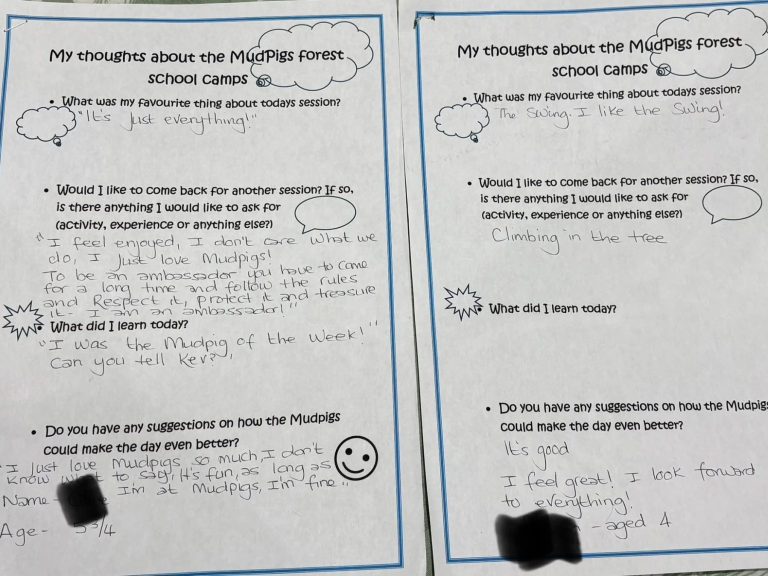 My thoughts about the MudPigs forest
school camps
• What was my favourite thing about todays session?
"It's just everything!"
• Would I like to come back for another session? If so,
is there anything I would like to ask for
(activity, experience or anything else?)
"I feel enjoyed, I don't care what we
do, I just love Mudpigs!
To be an ambassador you have to come
for a long time and follow the rules
and Respect it, protect it and treasure
it - I am an ambassador!"
• What did I learn today?
"I was the Mudpig of the Week!"
Can you tell Kev?"
• Do you have any suggestions on how the Mudpigs
could make the day even better?
"I just love Mudpigs so much, I don't
know to say, It's fun, as long as
Name - I'm at Mudpigs, I'm fine"
Age - 5 3/4
My thoughts about the MudPigs forest
school camps
• What was my favourite thing about todays session?
The Swing. I like the Swing!
• Would I like to come back for another session? If so,
is there anything I would like to ask for
(activity, experience or anything else?)
Climbing in the tree
• What did I learn today?
• Do you have any suggestions on how the Mudpigs
could make the day even better?
It's good
I feel great! I look forward
to everything!
- aged 4